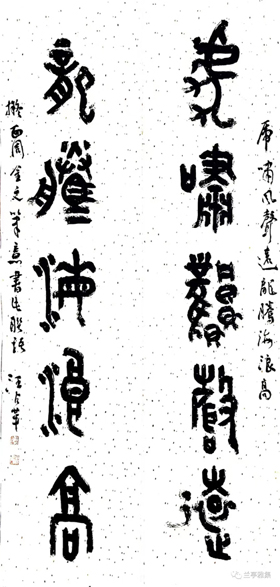 虎嘯風聲遠龍騰海浪高
虎嘯風聲遠
龍騰海浪高
擬西周金文筆意書此聯語